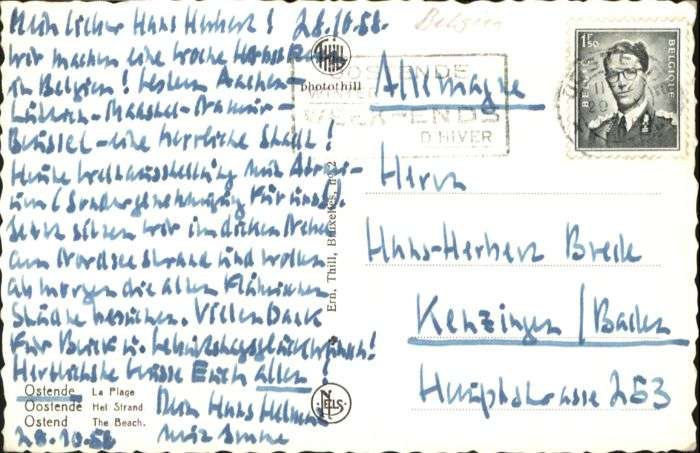 Mein lieber Hans Herbert! 28.10.58.
wir machen eine Woche Herbst
in Belgien! Gestern Aachen-
Lüttich-Maastal-Namur-
Brüssel-eine herrliche Stadt!
Heute Weltausstellung mit Atomi-
um (Sondergenehmigung für uns!).
Jetzt sitzen wir im dicken Nebel
am Nordsee Strand und wollen
ab morgen die alten Flämischen
Städte besuchen. Vielen Dank
für Brief u. Geburtstagsglückwünsche!
Herzlichste Grüsse Euch allen!
Dein Hans Helmut
mit
28.10.58
Ostende La Plage
Oostende Het Strand
Ostend The Beach.
photothill
Ern. Thill, Bruxelles, no 2
NELS
Belgien
OOSTENDE
WEEK-ENDS
D'HIVER
1F50
BELGIE
BELGIQUE
Allemagne
Herrn
Hans-Herbert
Kenzingen/Baden
Hauptstrasse 253